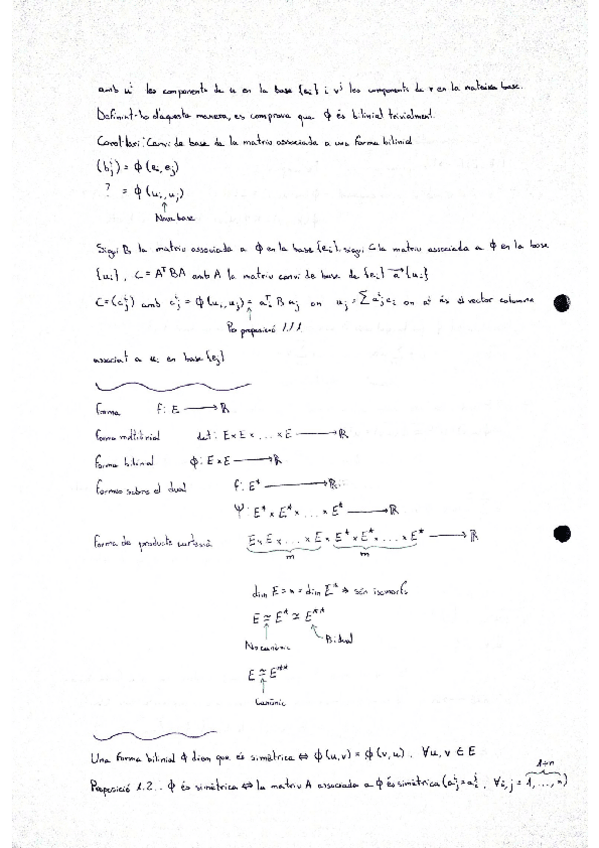 amb uⁱ les components de u en la base {eᵢ} i vʲ les components de v en la mateixa base.
Definint-ho d'aquesta manera, es comprova que ϕ és bilinial trivialment.
Corol·lari: Canvi de base de la matriu associada a una forma bilinial
(bⁱⱼ) = ϕ(eᵢ, eⱼ)
? = ϕ(uᵢ, uⱼ)
↑
Nova base
Sigui B la matriu associada a ϕ en la base {eᵢ}, sigui C la matriu associada a ϕ en la base
{uᵢ}, C = AᵀBA amb A la matriu canvi de base de {eᵢ} a {uᵢ}
C = (cⁱⱼ) amb cⁱⱼ = ϕ(uᵢ, uⱼ) = aᵢᵀ B aⱼ on uⱼ = Σ aⁱⱼ eᵢ on aⁱ és el vector columna
↑
Per proposició 1.1.1
associat a uᵢ en base {eⱼ}
forma f: E → ℝ
forma multilinial det: E × E × ... × E → ℝ
forma bilinial ϕ: E × E → ℝ
formes sobre el dual f: E* → ℝ
Ψ: E* × E* × ... × E* → ℝ
forma de producte cartesià E × E × ... × E × E* × E* × ... × E* → ℝ
m m
dim E = n = dim E* ⇒ són isomorfs
E ≅ E* ≅ E**
No canònic Bidual
E ≅ E**
↑
Canònic
Una forma bilinial ϕ diem que és simètrica ⇔ ϕ(u,v) = ϕ(v,u), ∀u,v ∈ E
1÷n
Proposició 1.2.: ϕ és simètrica ⇔ la matriu A associada a ϕ és simètrica (aⁱⱼ = aʲᵢ, ∀i,j = 1, ..., n)